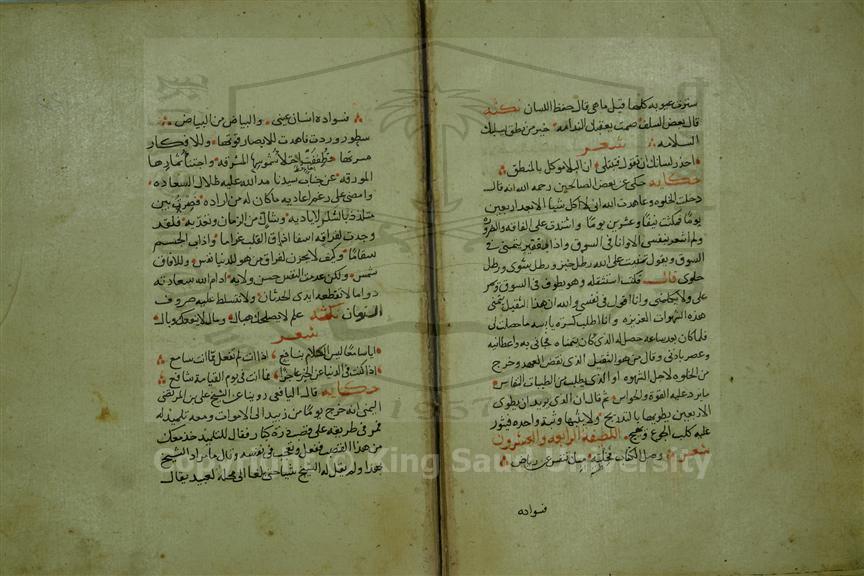 سترت عيوبه كلها قيل ما هي قال حفظ اللسان نكتة
قال بعض السلف صمت يعقبك الندامه خير من نطق يسلبك
السلامه شعر
احذر لسانك ان تقول فتبتلى ان البلاء موكل بالمنطق
حكاية حكى عن بعض الصالحين رحمه الله انه قال
دخلت الخلوه وعاهدت الله ان لا اكل شيا الا بعد اربعين
يوما فمكثت نيفا وعشرين يوما واشتدت على الفاقه والضروره
ولم اشعر بنفسي الا وانا في السوق واذا بفقير يتمنى في
السوق ويقول تمنيت على الله رطل خبز ورطل شوى ورطل
حلوى قال فكنت استثقله وهو يطوف في السوق ويمر
على ولا يكلمني وانا اقول في نفسي والله ان هذا الثقيل يتمنى
هذه الشهوات العزيزه وانا اطلب كسرة يابسه ما حصلت لي
فلما كان بعد ساعه حصل له الذي كان يتمناه فجاني به واعطانيه
وعصر باذني وقال من هو الثقيل الذي نقض العهد وخرج
من الخلوه لاجل الشهوه او الذي يطلب من الطيبات النفايس
ما يرد عليه القوة والحواس ثم قال ان الذي يريد ان يطوى
الاربعين يطويها بالتدريج ولا يثبها وثبة واحده فيثور
عليه كلب الجوع ويهيج اللطيفة الرابعه والعشرون
شعر وصل الكتاب من رياض
فسواده
فسواده انسان عيني والبياض من البياض
سطور وردت فاهدت للابصار قوتها وللافكار
مسرتها المشرقه واجتنا ثمارها
المورقه عن جناب سيدنا مد الله عليه ظلال السعاده
وامضى على رغم اعاديه ما كان له من اراده بين
من الزمان وتعديه فلقد
وجدت لفراقه اسفا اذاق القلب غراما واذاب الجسم
سقاما وكيف لا يحزن لفراق من هو للدنيا نفس وللافاق
شمس ولكن عدمت النفس حسن ولايه ادام الله سعادته
دواما لا تقطعه ايدي الحدثان ولا تتسلط عليه صروف
الزمان نكتة علم لا يصلحك هبال ومال لا ينفعك وبال
شعر
ايا سامعا ليس الكلام بنافع اذا انت لم تفعل فما انت سامع
اذا كنت في الدنيا عن الخير عاجزا فما انت في يوم القيامة شافع
حكايه قال اليافعي روينا عن الشيخ على بن المرتضى
اليمني انه خرج يوما من زبيد الى الاهواب ومعه تلميذ له
فمر في طريقه على قصب ذرة كبار فقال للتلميذ خذ معك
من هذا القصب ففعل وتعجب في نفسه وقال ما مراد الشيخ
بهذا ولم يقل له الشيخ شيا حتى بلغا الى محلة لعبيد يقال
1957
Copyright © King Saud University